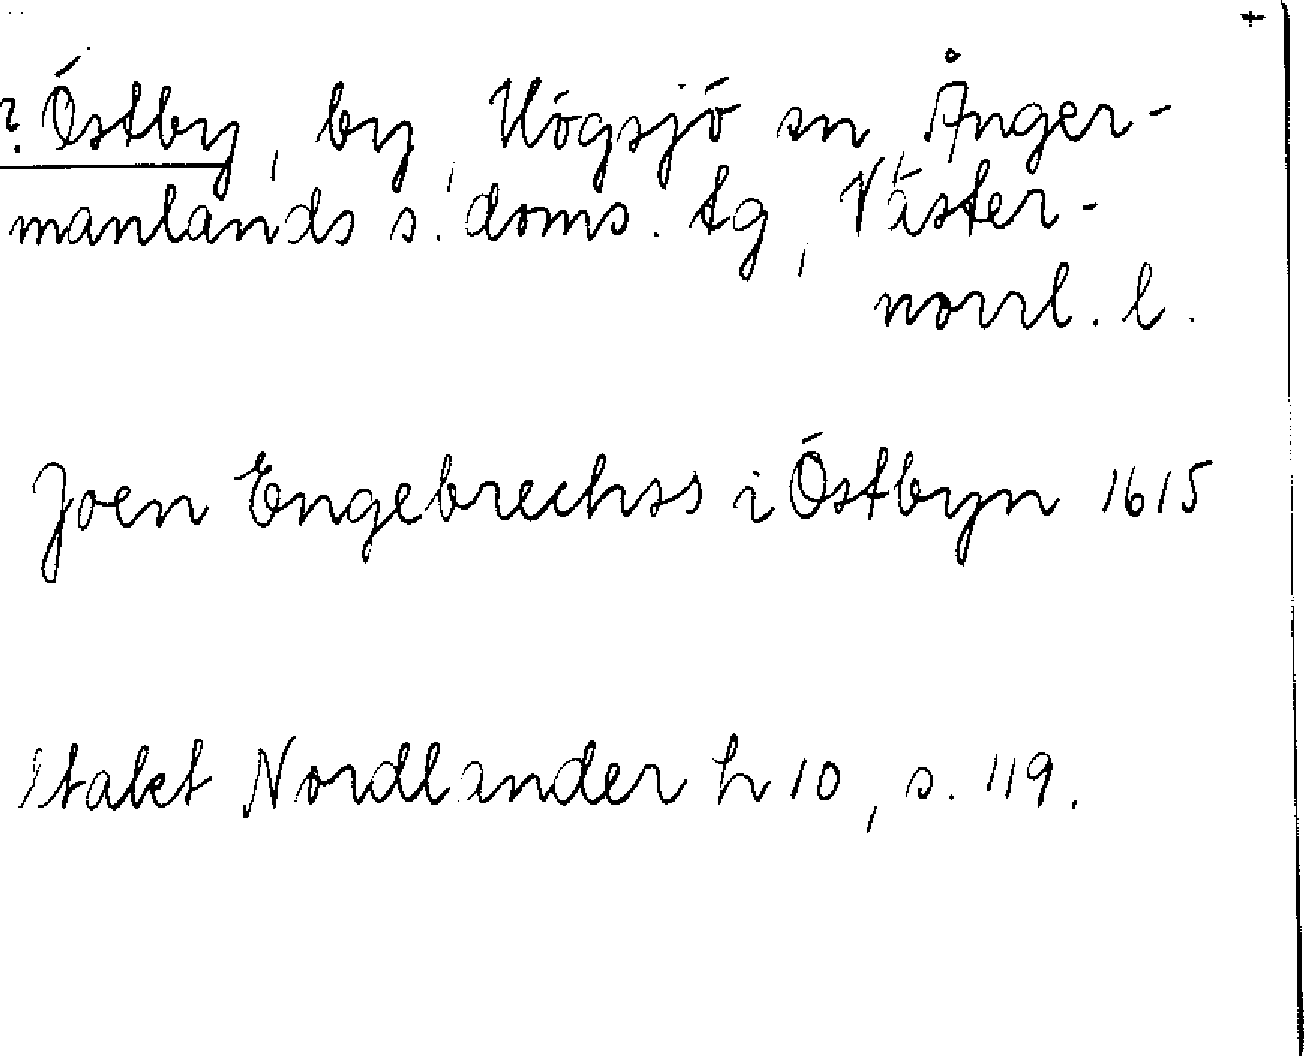 ? Östby, by, Högsjö sn, Ånger-
manlands s. doms. tg, Väster-
norrl. l.
Joen Engebrechss i Östbyn 1615
Nordlander h 10, s. 119.